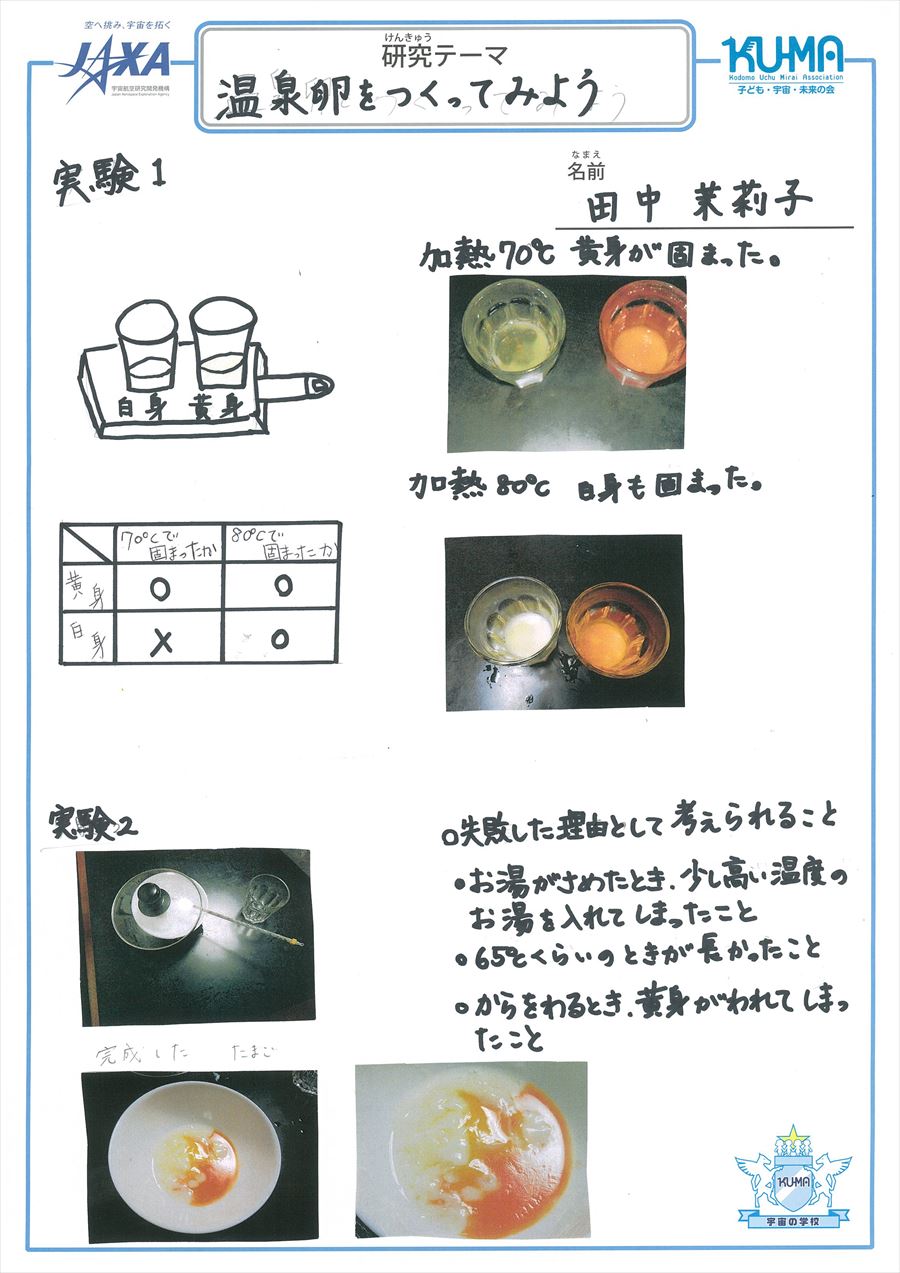 空へ挑み、宇宙を拓く
JAXA
宇宙航空研究開発機構
Japan Aerospace Exploration Agency
けんきゅう
研究テーマ
温泉卵をつくってみよう
KU-MA
Kodomo Uchu Mirai Association
子ども・宇宙・未来の会
実験1
なまえ
名前
田中 茉莉子
加熱70℃ 黄身が固まった。
白身 黄身
加熱80℃ 白身も固まった。
70℃で固まったか 80℃で固まったか
黄身 O O
白身 X O
実験2
○失敗した理由として考えられること
・お湯がさめたとき、少し高い温度の
お湯を入れてしまったこと
・65℃くらいのときが長かったこと
・からをわるとき、黄身がわれてしまっ
たこと
完成した たまご
KU-MA
宇宙の学校